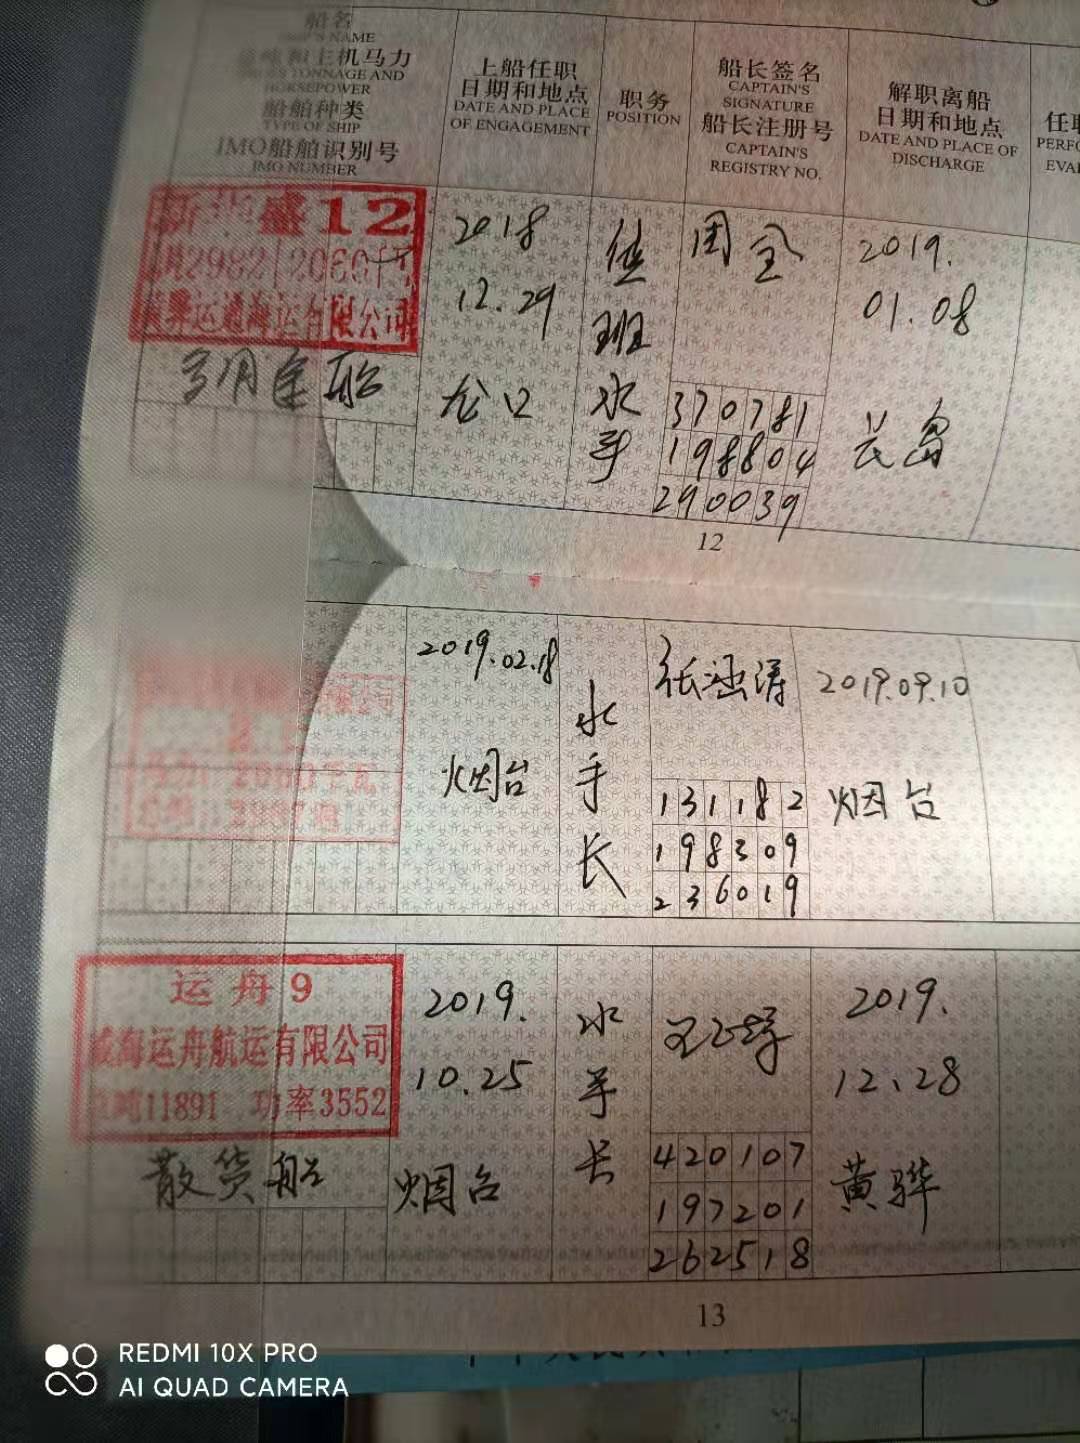 船名
NAME
主机马力
TONNAGE AND
HORSEPOWER
船舶种类
TYPE OF SHIP
IMO船舶识别号
IMO NUMBER
上船任职
日期和地点
DATE AND PLACE
OF ENGAGEMENT
职务
POSITION
船长签名
CAPTAIN'S
SIGNATURE
船长注册号
CAPTAIN'S
REGISTRY NO.
解职离船
日期和地点
DATE AND PLACE OF
DISCHARGE
任
PERFO
EVA
新华盛12
2982 2060
运通海运有限公司
多用途船
2018
12.29
龙口
值班水手
周全
370781
198804
290039
2019.
01.08
长岛
12
限公司
2060千瓦
2019.02.18
烟台
水手长
张涵涛
131182
198309
236019
2019.09.10
烟台
运舟9
威海运舟航运有限公司
总吨11891 功率3552
散货船
2019.
10.25
烟台
水手长
420107
197201
262518
2019.
12.28
黄骅
13
REDMI 10X PRO
AI QUAD CAMERA